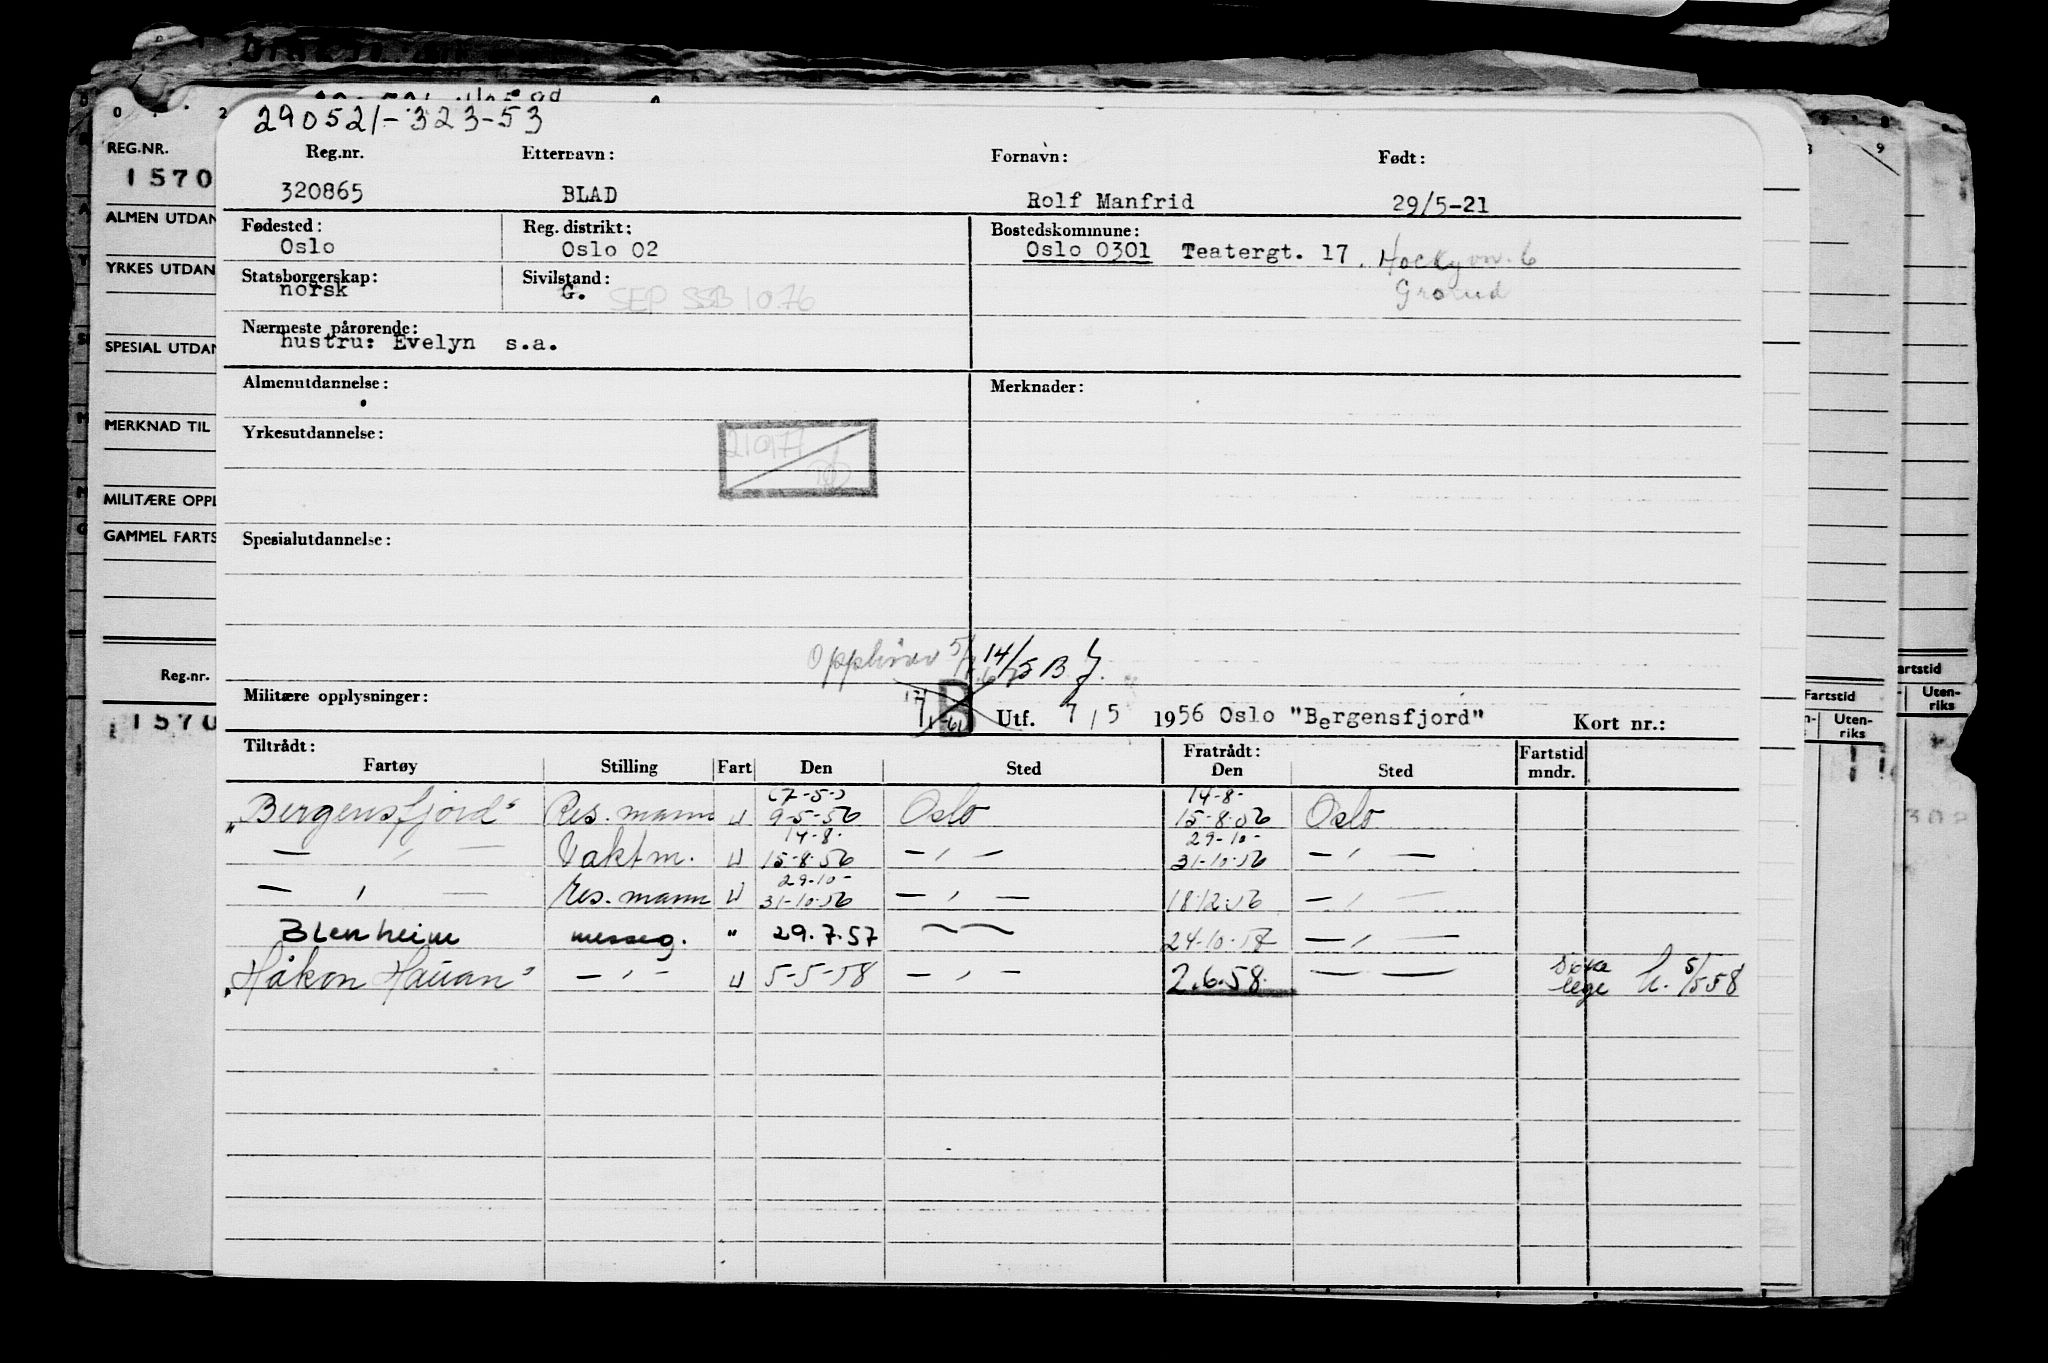 290521-323-53
Reg.nr. Etternavn: Fornavn: Født:
320865 BLAD Rolf Manfrid 29/5-21
Fødested: Reg. distrikt: Bostedskommune:
Oslo Oslo 02 Oslo 0301 Teatergt. 17, Hockeyvn. 6
Grorud
Statsborgerskap: Sivilstand:
norsk G. SEP SSB 10 76
Nærmeste pårørende:
hustru: Evelyn s.a.
Almenutdannelse: Merknader:
Yrkesutdannelse:
210977
Spesialutdannelse:
Opphører 14/5 B
Militære opplysninger: B Utf. 7/5 1956 Oslo "Bergensfjord" Kort nr.:
Tiltrådt: Fratrådt: Fartstid
Fartøy Stilling Fart Den Sted Den Sted mndr.
(7-5-) 14-8-
"Bergensfjord" Res. mann U 9-5-56 Oslo 15-8-56 Oslo
14-8- 29-10-
— " — Vaktm. U 15-8-56 — " — 31-10-56 — " —
29-10-
— " — Res. mann U 31-10-56 — " — 18-12-56 — " —
Blenheim messeg. " 29.7.57 — — 24-10-57 — " —
"Håkon Hauan" — " — U 5-5-58 — " — 2.6.58. — — lege 5/5 58
REG.NR.
1570
ALMEN UTDAN
YRKES UTDAN
SPESIAL UTDAN
MERKNAD TIL
MILITÆRE OPPL
GAMMEL FARTS
Reg.nr.
1570
Fartstid
Uten-
riks
artstid
Uten-
riks